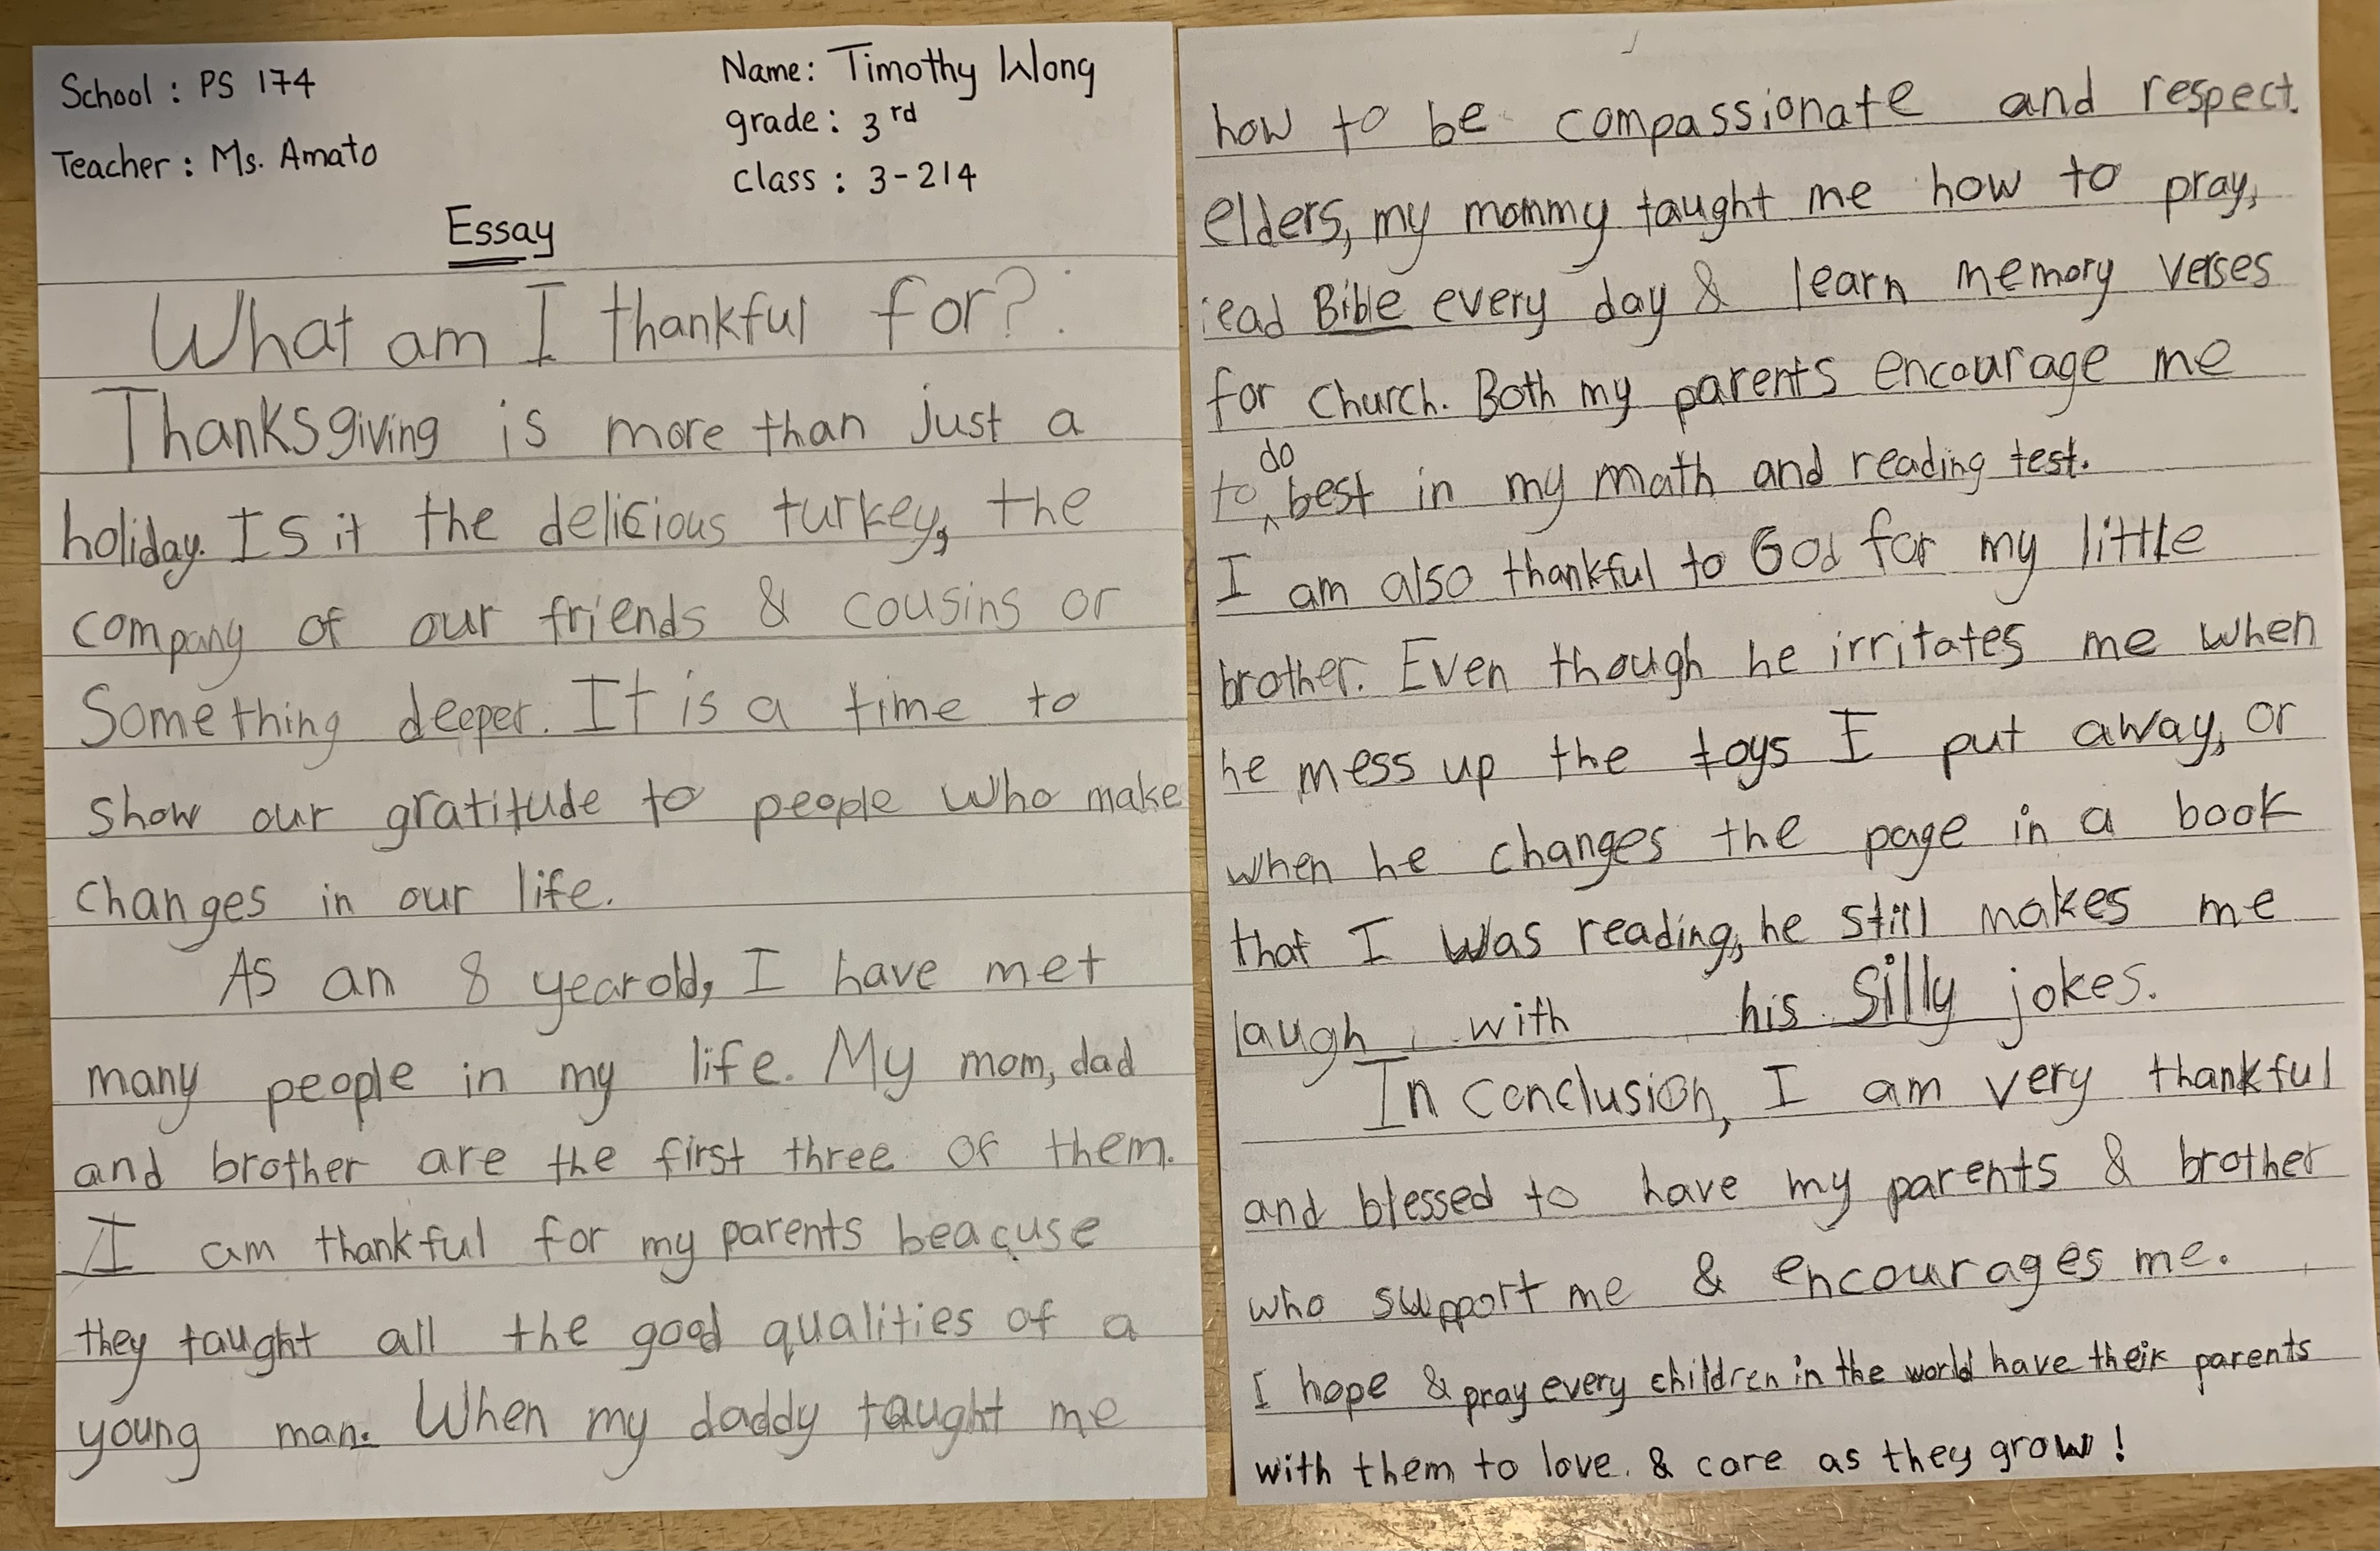 School : PS 174
Teacher : Ms. Amato
Name: Timothy Wong
grade : 3rd
class : 3-214
Essay
What am I thankful for?
Thanksgiving is more than just a
holiday. Is it the delicious turkey, the
company of our friends & cousins or
Something deeper. It is a time to
show our gratitude to people who make
changes in our life.
As an 8 year old, I have met
many people in my life. My mom, dad
and brother are the first three of them.
I am thankful for my parents beacuse
they taught all the good qualities of a
young man. When my daddy taught me
how to be compassionate and respect
elders, my mommy taught me how to pray,
read Bible every day & learn memory verses
for church. Both my parents encourage me
to do best in my math and reading test.
I am also thankful to God for my little
brother. Even though he irritates me when
he mess up the toys I put away, or
when he changes the page in a book
that I was reading, he still makes me
laugh with his silly jokes.
In conclusion, I am very thankful
and blessed to have my parents & brother
who support me & encourages me.
I hope & pray every children in the world have their parents
with them to love & care as they grow!